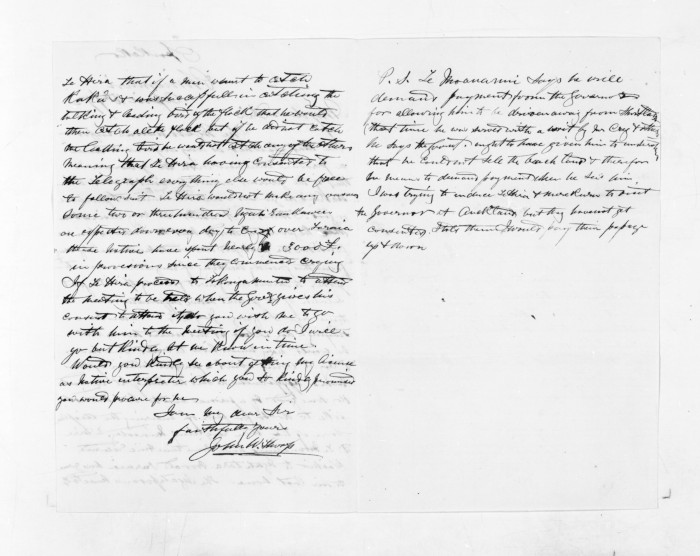 Te Hira that if a man went to catch
Kaka's & was successful in catching the
talking & leading bird of the flock that he would
then catch all the flock but if he did not catch
the leading bird he would not catch any of the others
meaning that Te Hira having consented to
the Telegraph everything else would be free
to follow but Te Hira would not make any answer
Some two or three hundred
are expected down every day to cry over
these natives have spent nearly 3000£'s
in provisions since they commenced crying
If Te Hira proceeds to Tokangamutu to attend
the meeting to be held when the Govr gives his
consent to attend it do you wish me to go
with him to the meeting if you do I will
go but kindly let me know in time
Would you kindly see about getting my license
as Native interpreter which you so kindly promised
you would procure for me
I am my dear Sir
faithfully yours
John W. Thorp
P. S. Te Moananui says he will
demand payment from the Governor
for allowing him to be driven away from
that time he was served with a writ by
he says the Govmt ought to have given him to understand
that he could not sell the beach land & therefore
he means to demand payment when he sees him
I was trying to induce Te Hira & to visit
the Governor at Auckland but they have not yet
consented I told them I would pay their passage
up & down